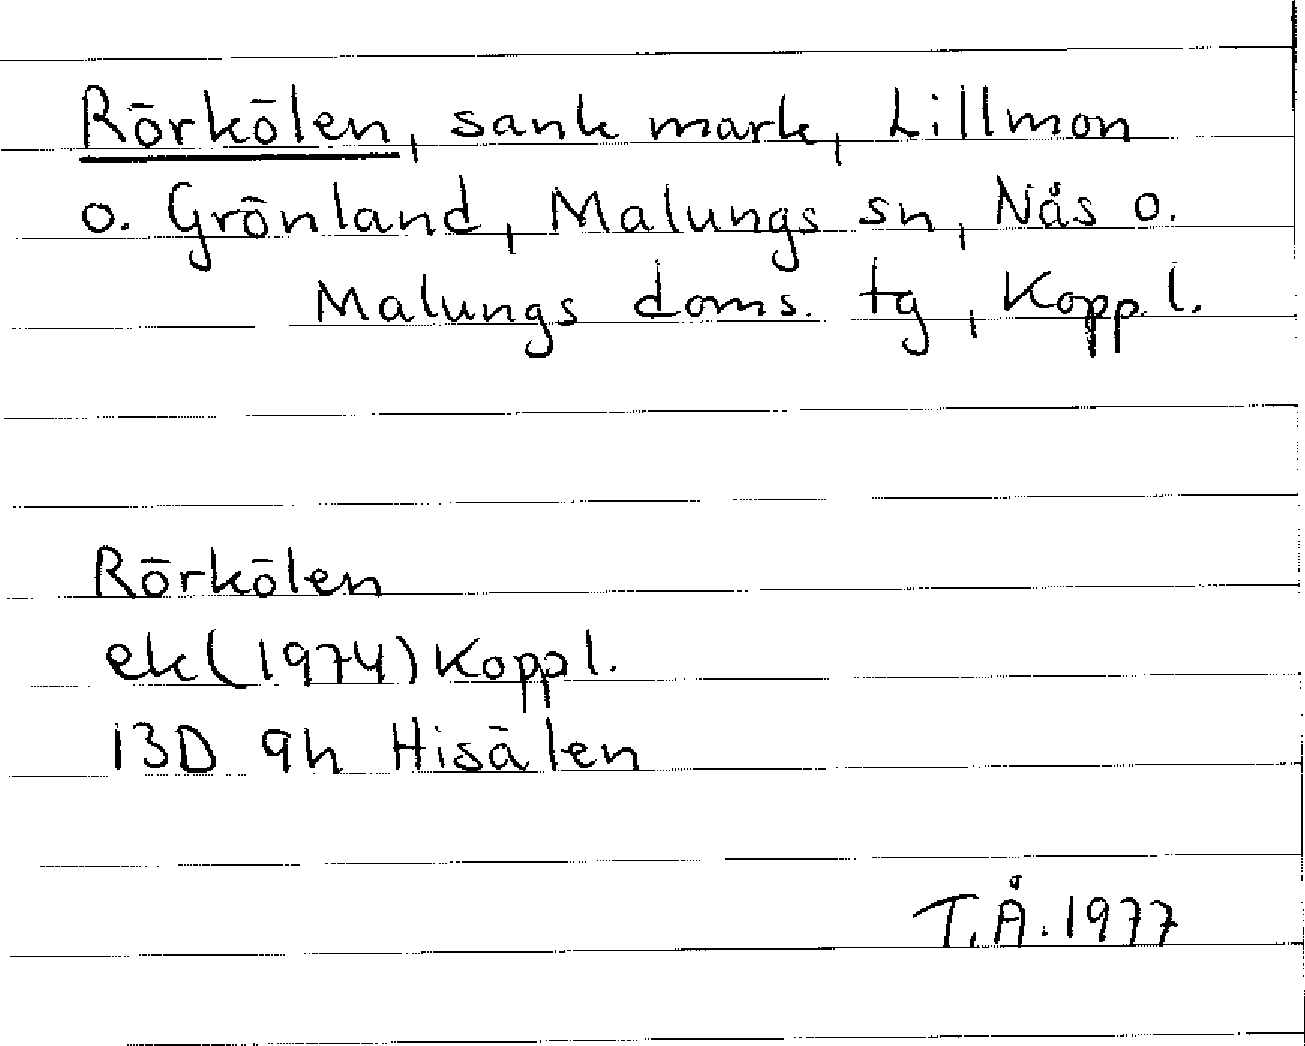 Rörkölen, sank mark, Lillmon
o. Grönland, Malungs sn, Nås o.
Malungs doms. tg, Kopp. l.
Rörkölen
ek (1974) Kopp l.
13D 9h Hisälen
T.Å. 1977